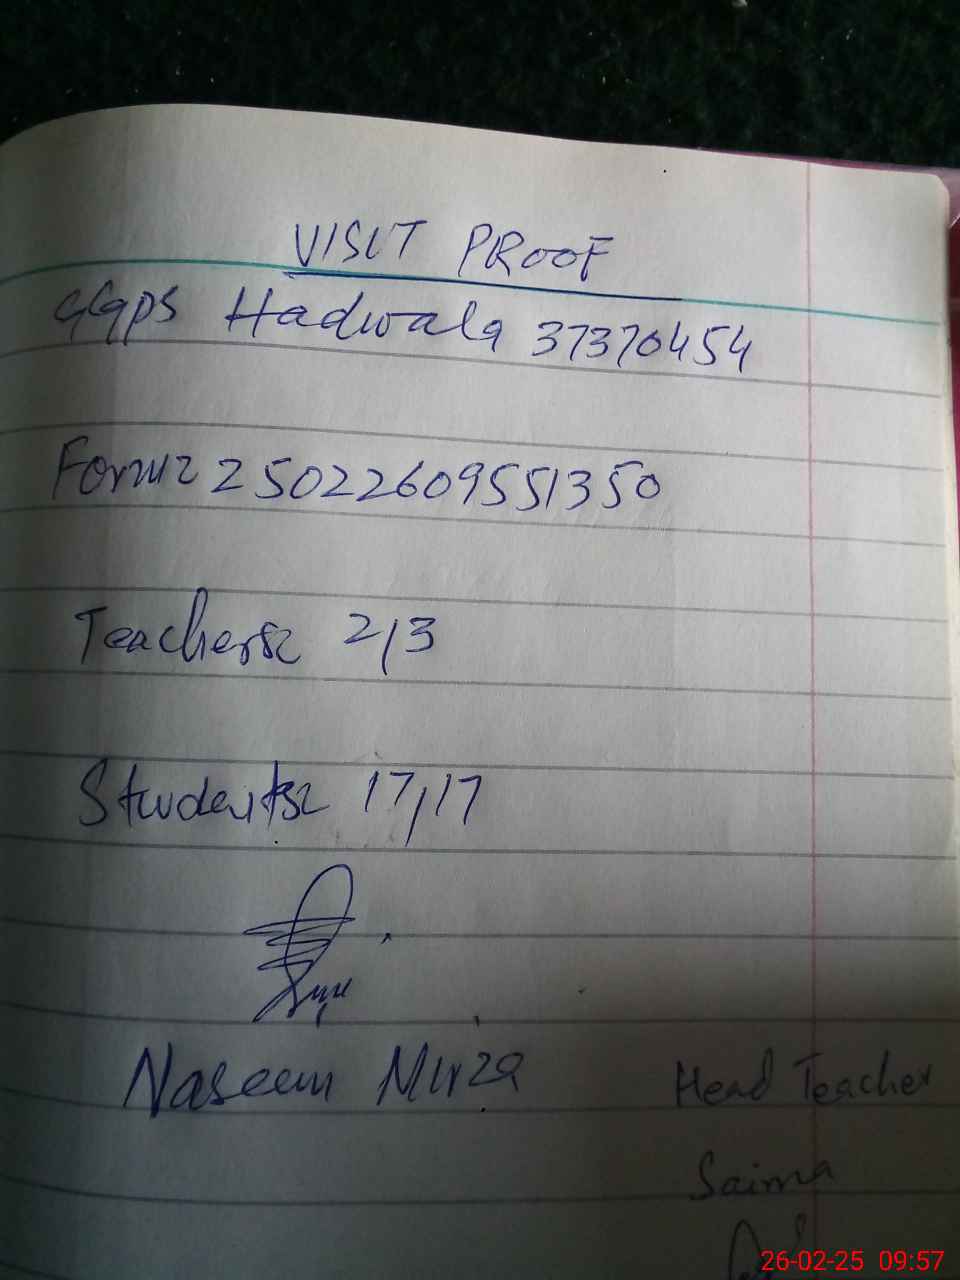 VISIT PROOF
GGPS Hadwala 37370454
Form: 25022609551350
Teachers: 2/3
Students: 17/17
Naseem Mirza
Head Teacher
Saima
26-02-25 09:57